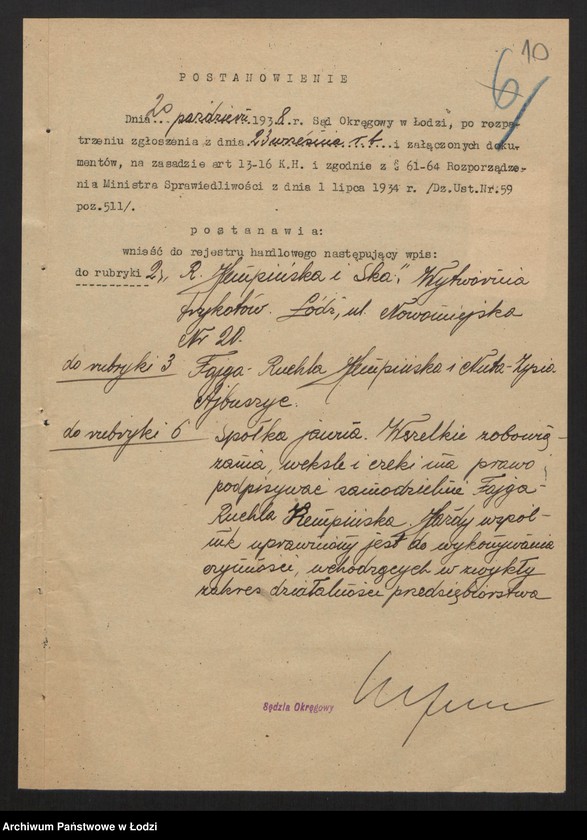 10
6
POSTANOWIENIE
Dnia 20 październ. 1938. r. Sąd Okręgowy w Łodzi, po rozpa-
trzeniu zgłoszenia z dnia 23 września r.b. i załączonych doku-
mentów, na zasadzie art 13-16 K.H. i zgodnie z § 61-64 Rozporządze-
nia Ministra Sprawiedliwości z dnia 1 lipca 1934 r. /Dz.Ust.Nr.59
poz.511/.
postanawia:
wnieść do rejestru handlowego następujący wpis:
do rubryki 2., R. Kempińska i Ska", Wytwórnia
trykotów. Łódź, ul. Nowomiejska
Nr 20.
do rubryki 3 Fajga-Ruchla Kempińska i Nuta-Zysia
Ajbuszyc.
do rubryki 6 Spółka jawna. Wszelkie zobowią-
zania, weksle i czeki ma prawo
podpisywać samodzielnie Fajga-
Ruchla Kempińska. Każdy wspól-
nik uprawniony jest do wykonywania
czynności, wchodzących w zwykły
zakres działalności przedsiębiorstwa
Sędzia Okręgowy
Archiwum Państwowe w Łodzi